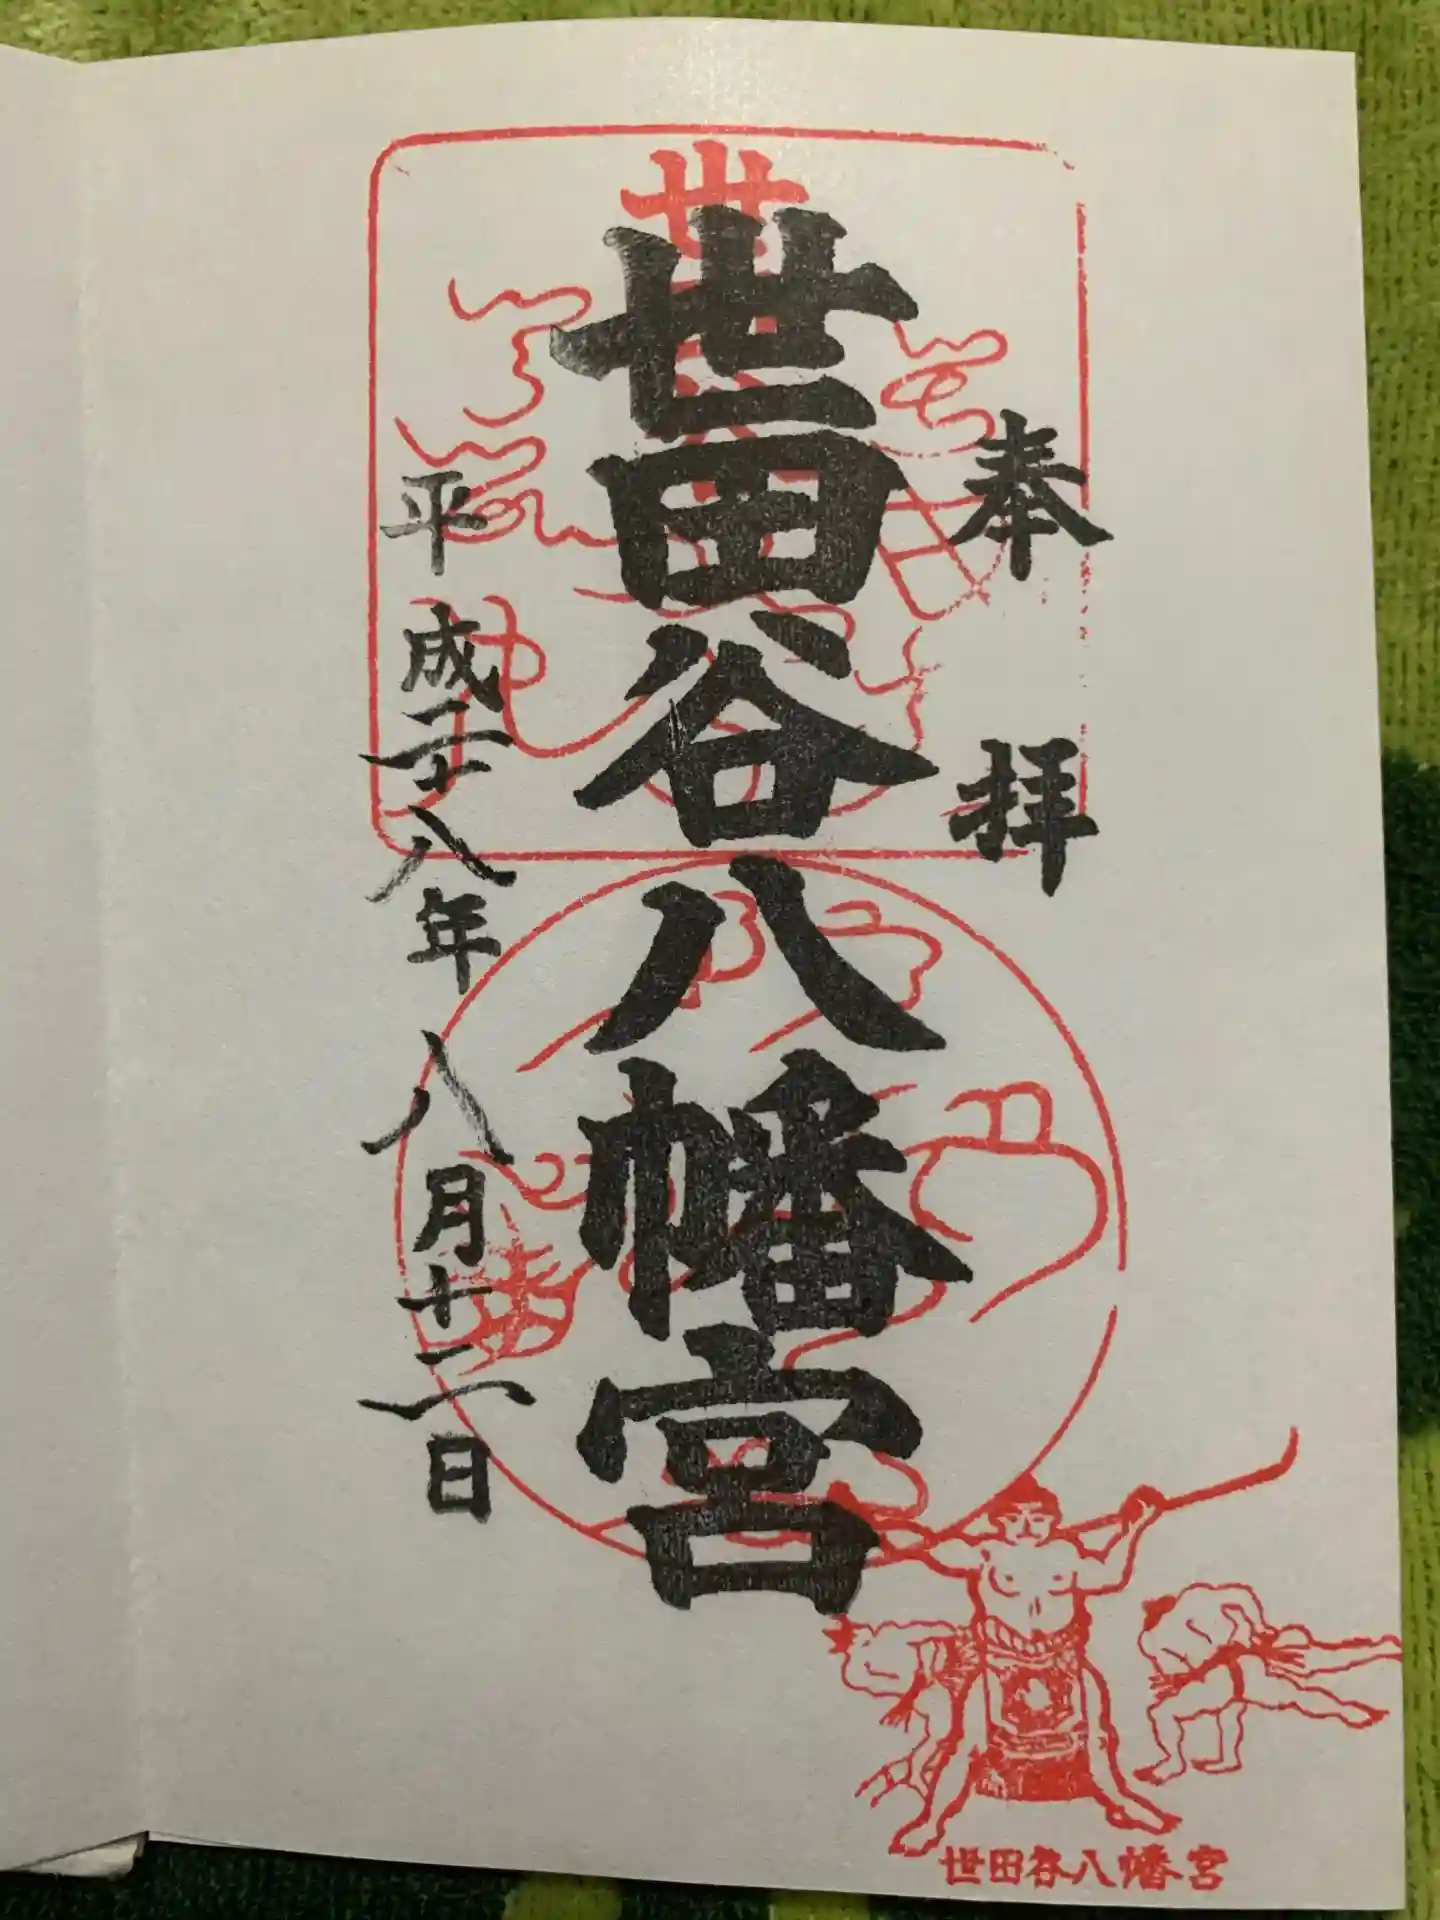 奉拝
世田谷八幡宮
平成二十八年八月十二日
世田谷八幡宮